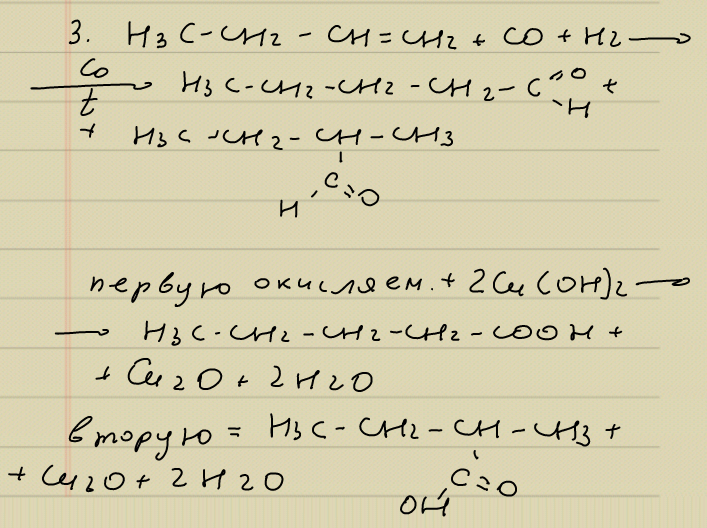 3. H3C-CH2-CH=CH2 + CO + H2 →
Co
→ H3C-CH2-CH2-CH2-C=O +
t
H
+ H3C-CH2-CH-CH3
C
H =O
первую окисляем. + 2Cu(OH)2 →
→ H3C-CH2-CH2-CH2-COOH +
+ Cu2O + 2H2O
вторую = H3C-CH2-CH-CH3 +
+ Cu2O + 2H2O C=O
OH